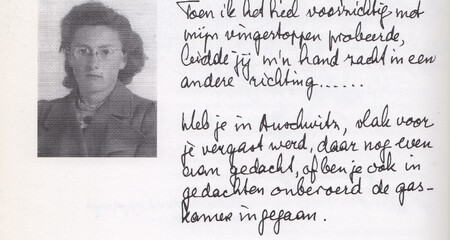 Toen ik het heel voorzichtig met
mijn vingertoppen probeerde,
leidde jij m'n hand zacht in een
andere richting......
Heb je in Auschwitz, vlak voor
je vergast werd, daar nog even
aan gedacht, of ben je ook in
gedachten onberoerd de gas-
kamer ingegaan.